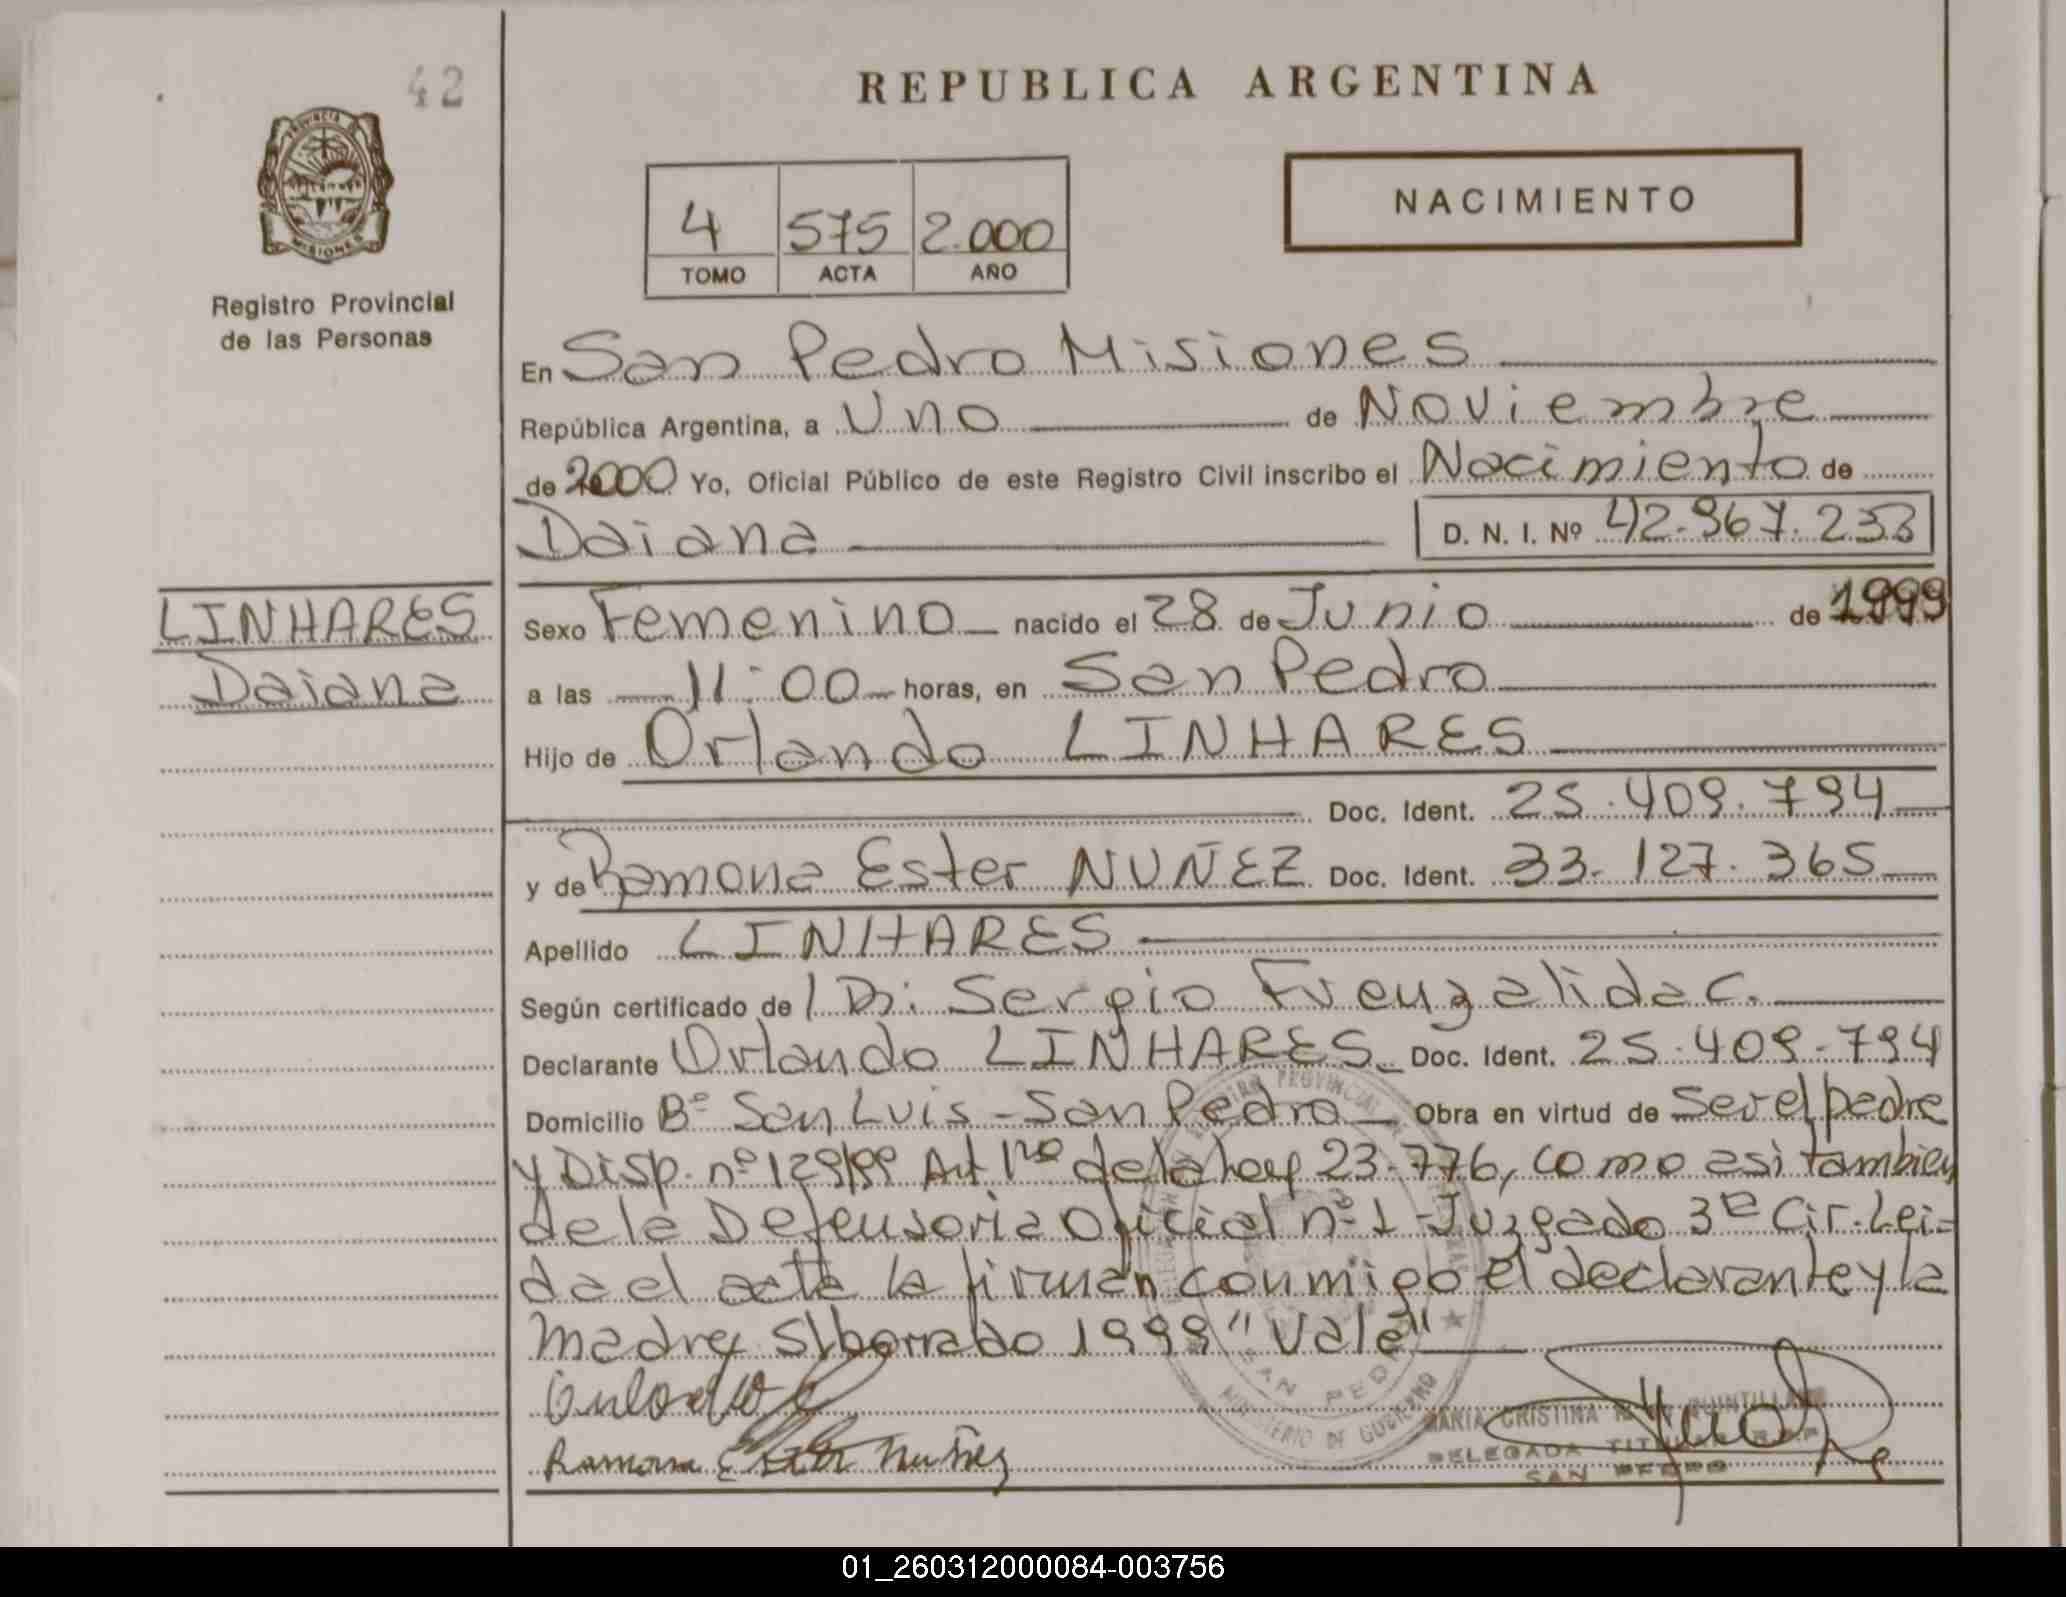 42
REPUBLICA ARGENTINA
PROVINCIA DE
MISIONES
Registro Provincial
de las Personas
4 575 2.000
TOMO ACTA AÑO
NACIMIENTO
En San Pedro Misiones
República Argentina, a Uno de Noviembre
de 2000 Yo, Oficial Público de este Registro Civil inscribo el Nacimiento de
Daiana D. N. I. Nº 42.967.233
LINHARES
Daiana
Sexo Femenino nacido el 28 de Junio de 1999
a las 11:00 horas, en San Pedro
Hijo de Orlando LINHARES
Doc. Ident. 25.409.794
y de Ramona Ester NUÑEZ Doc. Ident. 33.127.365
Apellido LINHARES
Según certificado de Dr: Sergio C.
Declarante Orlando LINHARES Doc. Ident. 25.409.794
Domicilio Bº San Luis - San Pedro Obra en virtud de ser el padre
y Disp. nº 129/99 Art 1ro de la Ley 23.776, como asi tambien
de la Defensoria Oficial nº 1 Juzgado 3ª Cir. Lei-
da el acta la firman conmigo el declarante y la
madre S/borrado 1999 "Vale"
Ramona Ester Nuñez
MARIA CRISTINA QUINTILLAN
DELEGADA TITULAR R.P.P
SAN PEDRO
MINISTERIO DE GOBIERNO
01_260312000084-003756